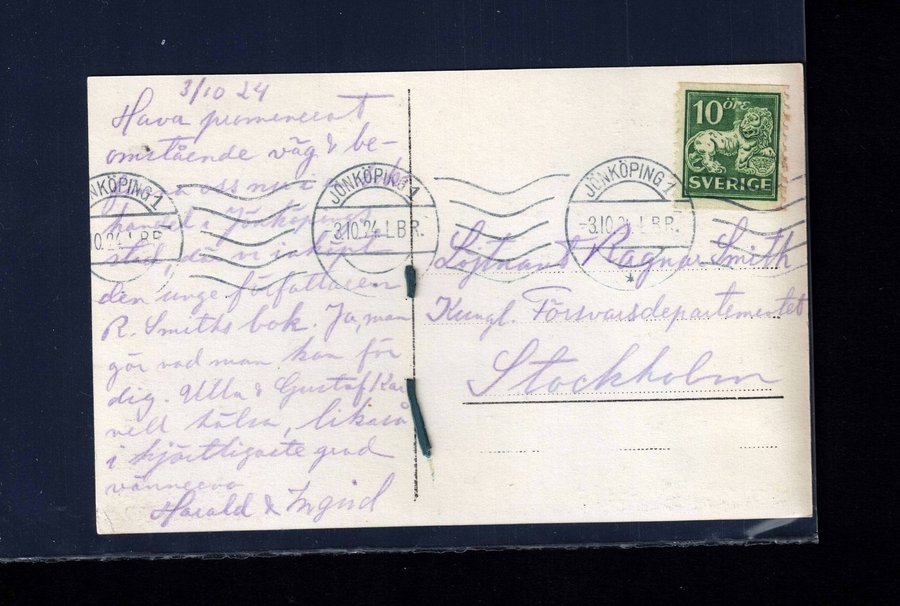 3/10 24
Hava promenerat
omstående väg & be-
oss nu i
handel i Jönköpings
stad, där vi inköpt
den unge författaren
R. Smiths bok. Ja, man
gör vad man kan för
dig. Ulla & Gustaf
hälsa, likaså
i hjärtligaste grad
vännerna
Harald & Ingrid
JÖNKÖPING 1
3.10.24 LBR.
JÖNKÖPING 1
-3.10.24 LBR.
JÖNKÖPING 1
-3.10.24 LBR.
10 ÖRE
SVERIGE
Löjtnant Ragnar Smith
Kungl. Försvarsdepartementet
Stockholm